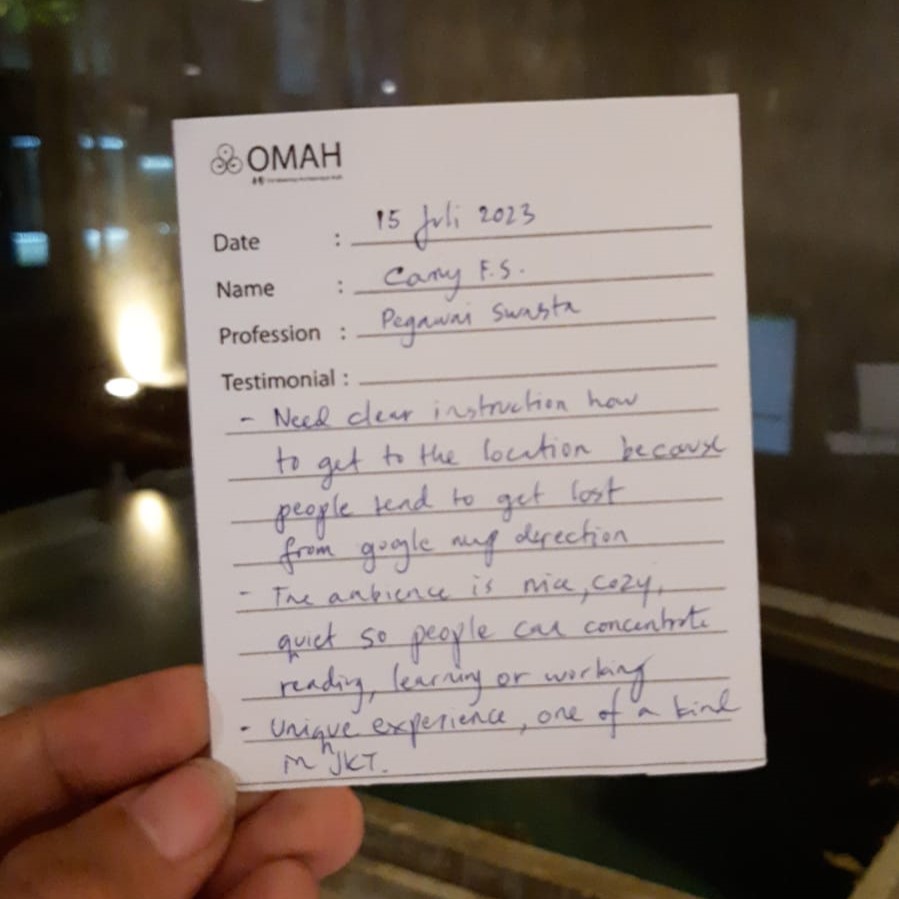 OMAH
Date : 15 Juli 2023
Name : Cany F.S.
Profession : Pegawai Swasta
Testimonial :
- Need clear instruction how
to get to the location because
people tend to get lost
from google map direction
- The ambience is nice, cozy,
quiet so people can concentrate
reading, learning or working
- Unique experience, one of a kind
in JKT.